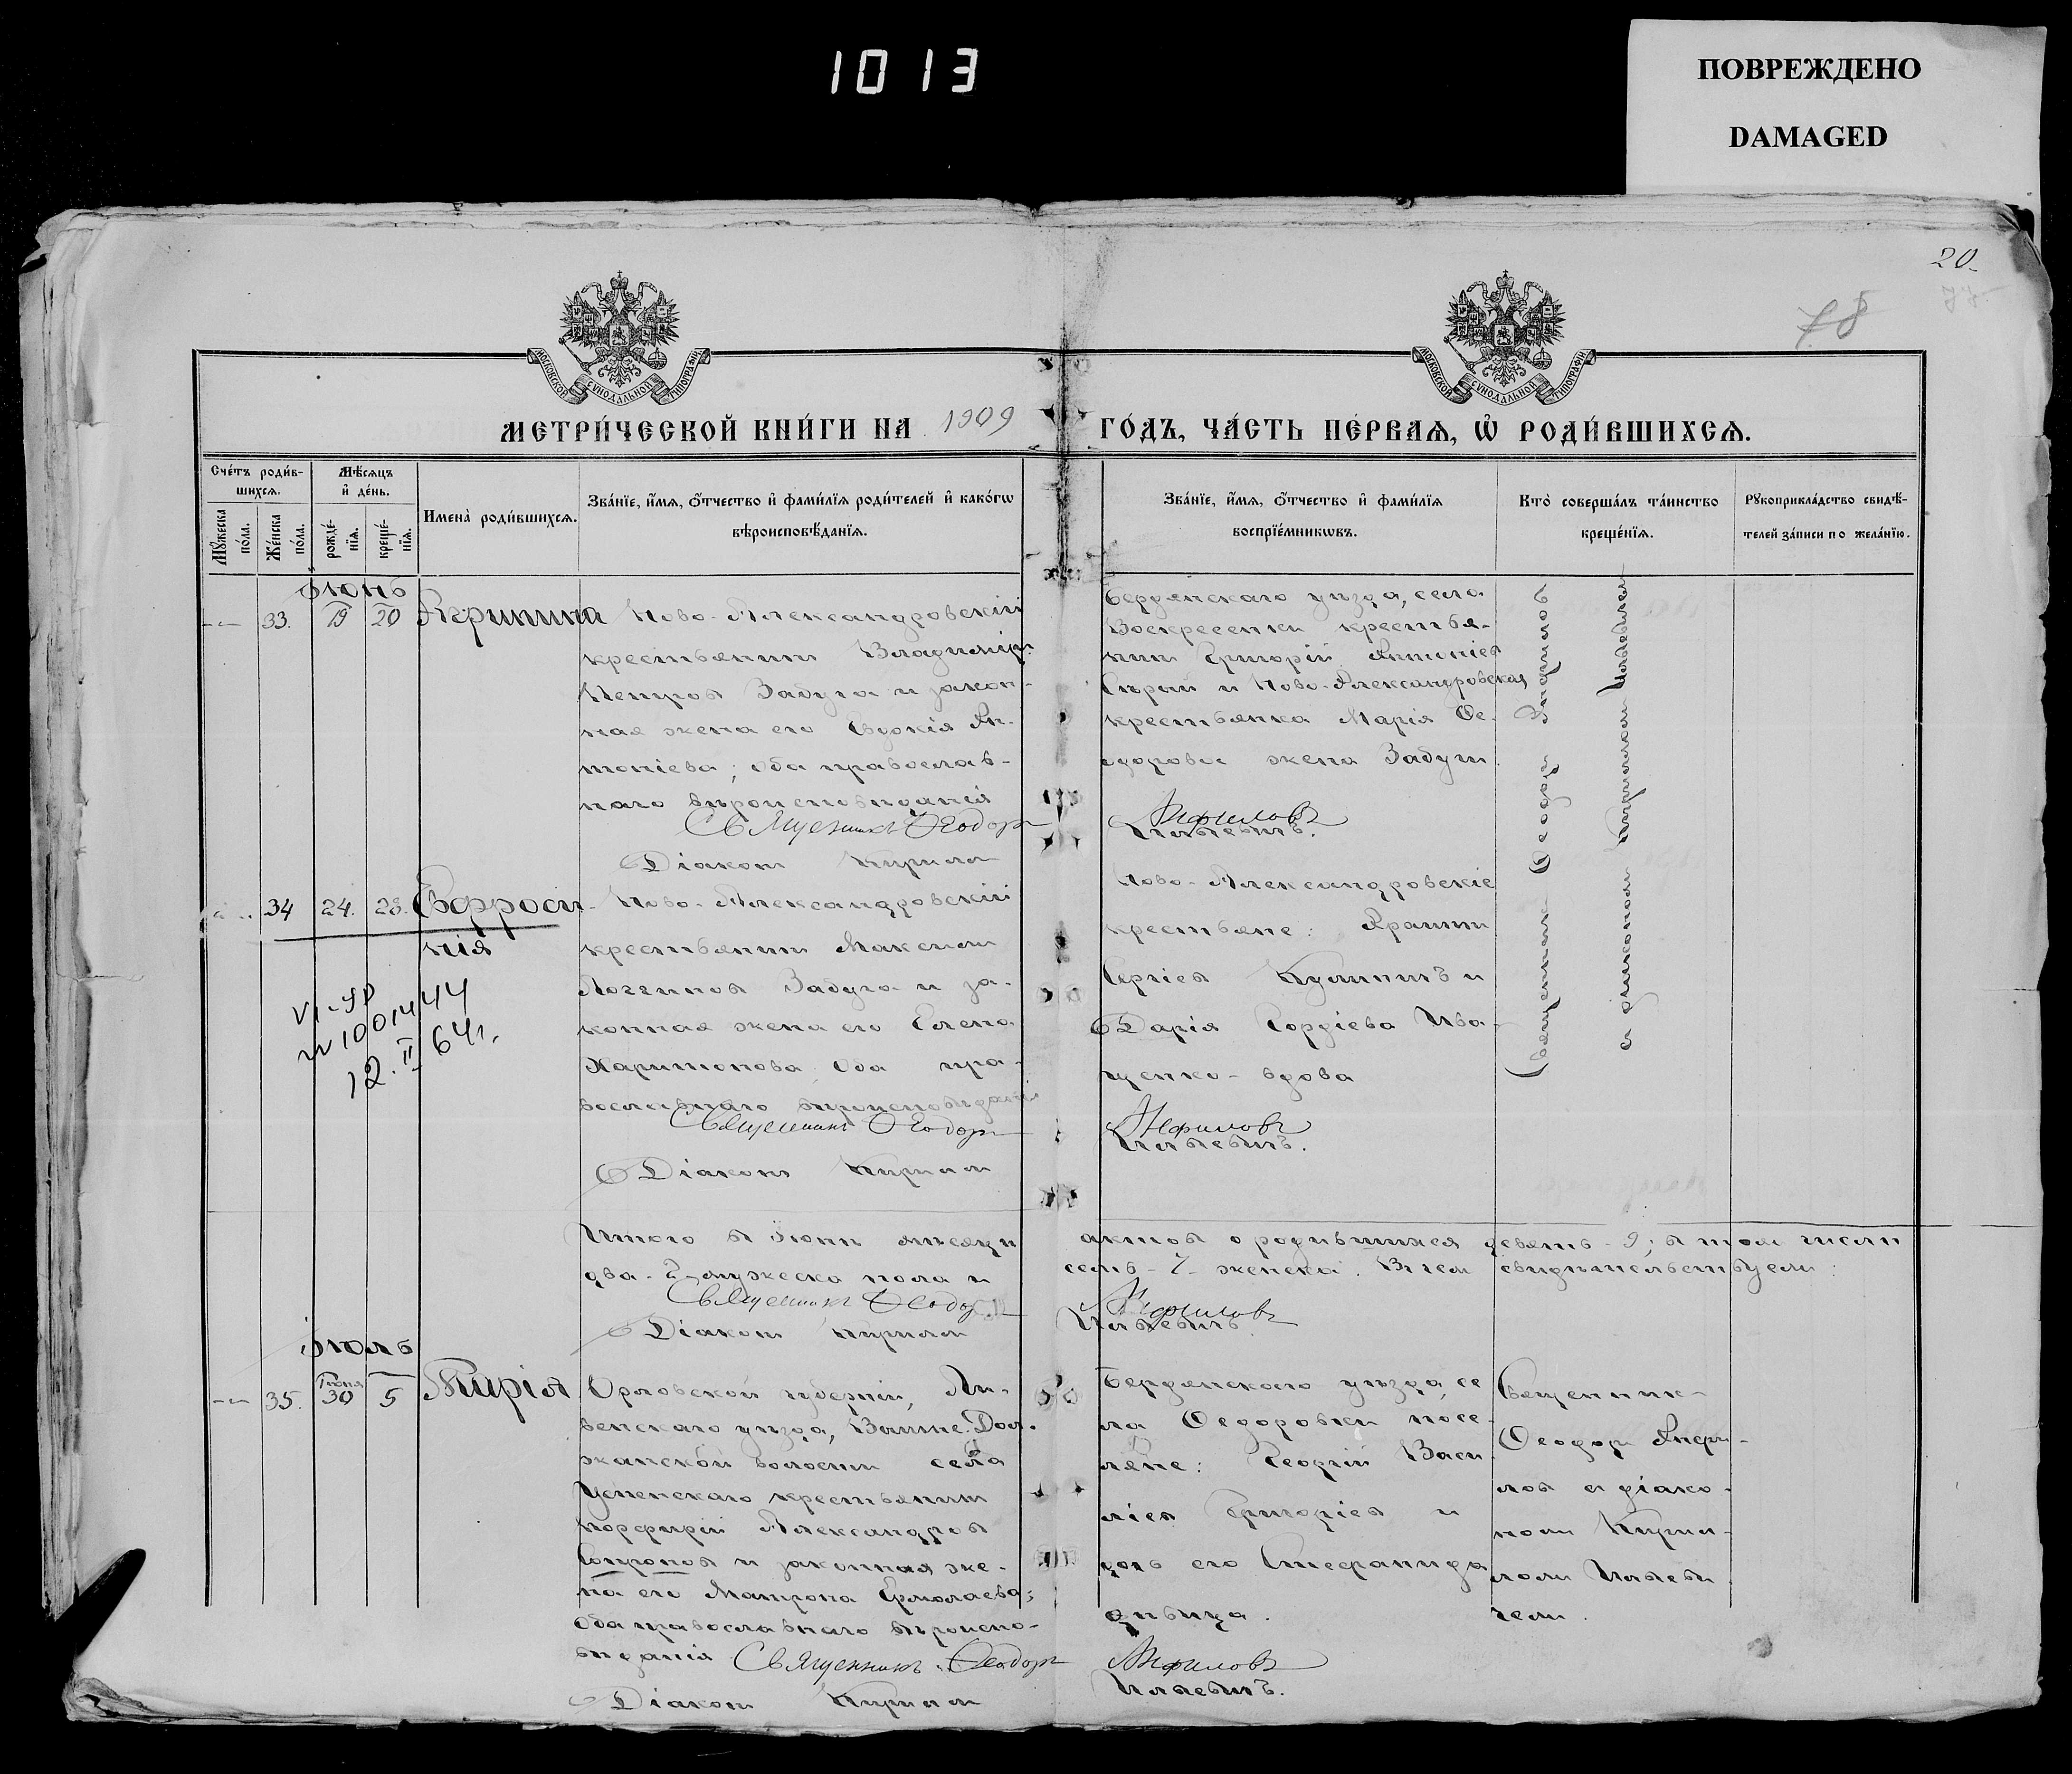 1013
ПОВРЕЖДЕНО
DAMAGED
20.
78
МОСКОВСКОЙ СУНОДАЛЬНОЙ ТИПОГРАФІИ
МОСКОВСКОЙ СУНОДАЛЬНОЙ ТИПОГРАФІИ
МЕТРИ́ЧЕСКОЙ КНИ́ГИ НА 1909 ГО́ДЪ, ЧА́СТЬ ПЕ́РВАѦ, Ѿ РОДИ́ВШИХСѦ.
Сче́тъ роди́в-
шихсѧ.
Мѣ́сѧцъ
и҆ де́нь.
Мꙋ́жеска по́ла.
Же́нска по́ла.
рожде́-
нїѧ.
креще́-
нїѧ.
Имена̀ роди́вшихсѧ.
Зва́нїе, и҆́мѧ, ѻ҆́тчество и҆ фами́лїѧ роди́телей и҆ како́гѡ
вѣроисповѣ́данїѧ.
Зва́нїе, и҆́мѧ, ѻ҆́тчество и҆ фами́лїѧ
воспрїе́мникѡвъ.
Кто̀ соверша́лъ та́инство
креще́нїѧ.
Рꙋкоприкла́дство свидѣ́-
телей за́писи по жела́нїю.
Іюнь
33. 19 20 Агрипина
Ново-Александровскій
крестьянинъ Владиміръ
Петровъ Забуга и закон-
ная жена его Евдокія Ан-
тоніева; оба православ-
наго вѣроисповѣданія
Священникъ Ѳеодоръ
Діаконъ Кириллъ
Бердянскаго уѣзда, села
Воскресенки крестья-
нинъ Григорій Антоніев
Сѣрый и Ново-Александровская
крестьянка Марія Ѳе-
одорова жена Забуги.
Анфиловъ
Ильевичъ.
Священникъ Ѳеодоръ Анфиловъ
съ діакономъ Кирилломъ Ильевичемъ
34 24. 28. Евфроси-
нія
Ново-Александровскій
крестьянинъ Максимъ
Логгиновъ Забуга и за-
конная жена его Елена
Харитонова. Оба пра-
вославнаго вѣроисповѣданія
Священникъ Ѳеодоръ
Діаконъ Кириллъ
Ново-Александровскіе
крестьяне:
Сергіевъ и
Дарія Гордіева Ива-
щенко - вдова
Анфиловъ
Ильевичъ.
VI-ЯР
№ 1001444
12.II 64г.
Итого въ Іюнѣ мѣсяцѣ актовъ о родившихся девять - 9; въ томъ числѣ
два - 2 - мужеска пола и семь - 7 - женска. Въ чемъ свидѣтельствуемъ:
Священникъ Ѳеодоръ Анфиловъ
Діаконъ Кириллъ Ильевичъ
Іюль
35. Іюня 30 5 Марія
Орловской губерніи, Ли-
венскаго уѣзда, Вышне-Дол-
жанской волости села
Успенскаго крестьянинъ
Порфирій Александровъ
Сопроновъ и законная же-
на его Матрона Ермолаева;
оба православнаго вѣроиспо-
вѣданія Священникъ Ѳеодоръ
Діаконъ Кириллъ
Бердянскаго уѣзда, се
ла Ѳедоровки посе-
ляне: Георгій Васи
ліевъ Григоріевъ и
дочь его Стефанида
дѣвица.
Анфиловъ
Ильевичъ.
Священникъ
Ѳеодоръ Анфи-
ловъ съ діако-
номъ Кирил-
ломъ Ильеви
чемъ.